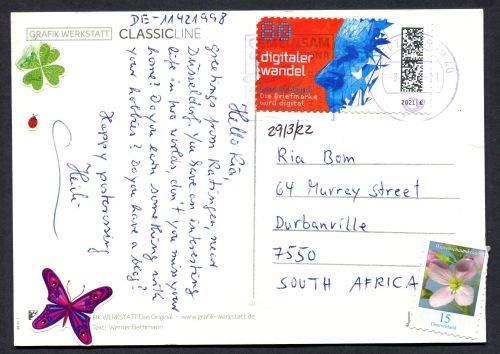 DE-11421998
GRAFIK WERKSTATT CLASSICLINE
Hello Ria,
greetings from Ratingen, near
Düsseldorf. You have an interesting
life in two worlds, don't you miss your
home? Do you earn something with
your hobbies? Do you have a blog?
Happy postcrossing
Heidi
80
digitaler
wandel
Die Briefmarke
wird digital
2021 €
29/3/22
Ria Bom
64 Murray Street
Durbanville
7550
SOUTH AFRICA
15
Deutschland
GRAFIK WERKSTATT Das Original · www.grafik-werkstatt.de
Text: Werner Bethmann